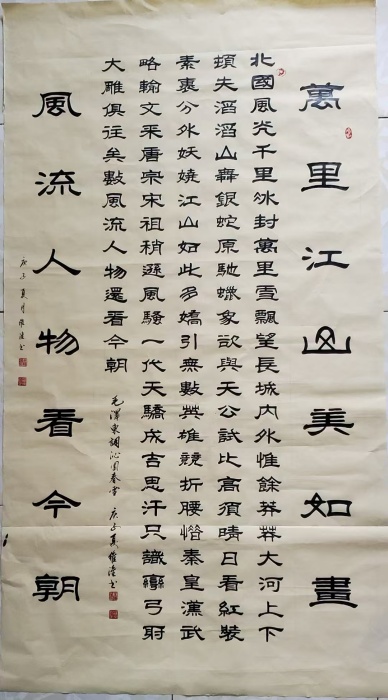 萬里江山美如畫
北國風光千里冰封萬里雪飄望長城內外惟餘莽莽大河上下
頓失滔滔山舞銀蛇原馳蠟象欲與天公試比高須晴日看紅裝
素裹分外妖嬈江山如此多嬌引無數英雄競折腰惜秦皇漢武
略輸文采唐宗宋祖稍遜風騷一代天驕成吉思汗只識彎弓射
大雕俱往矣數風流人物還看今朝
毛澤東詞沁園春雪 庚子夏 書
風流人物看今朝
庚子夏月 書